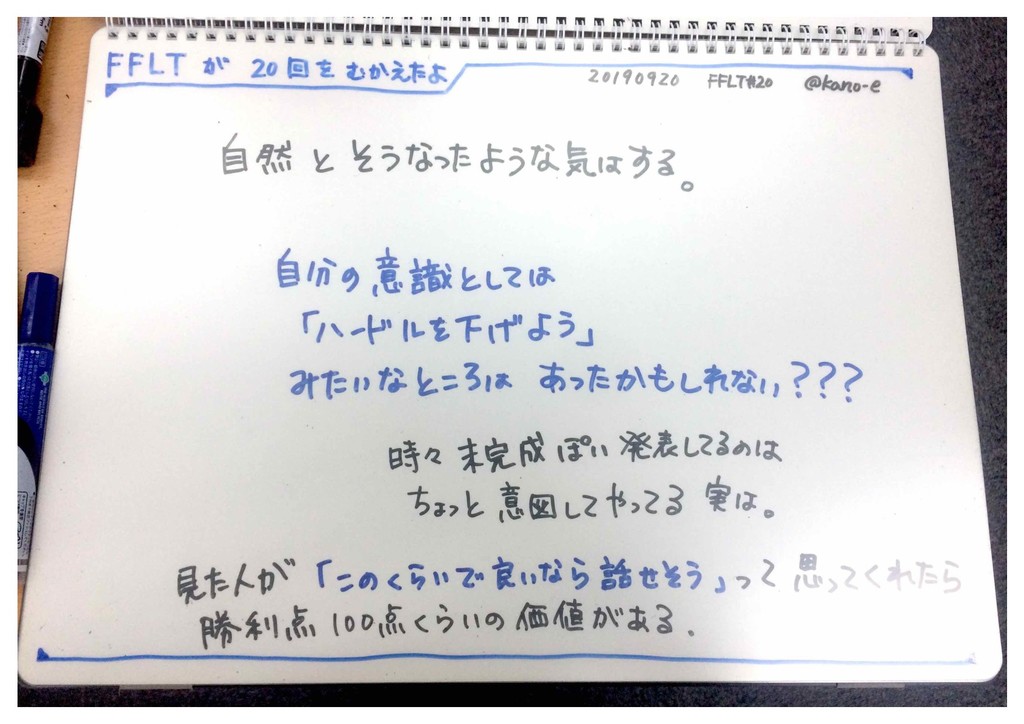 FFLT が 20回を むかえたよ
20190920 FFLT#20 @kano-e
自然 と そうなったような気はする。
自分の意識としては
「ハードルを下げよう」
みたいなところは あったかもしれない???
時々 未完成 ぽい 発表してるのは
ちょっと 意図してやってる 実は。
見た人が「このくらいで良いなら 話せそう」って 思ってくれたら
勝利点 100点くらいの 価値がある.